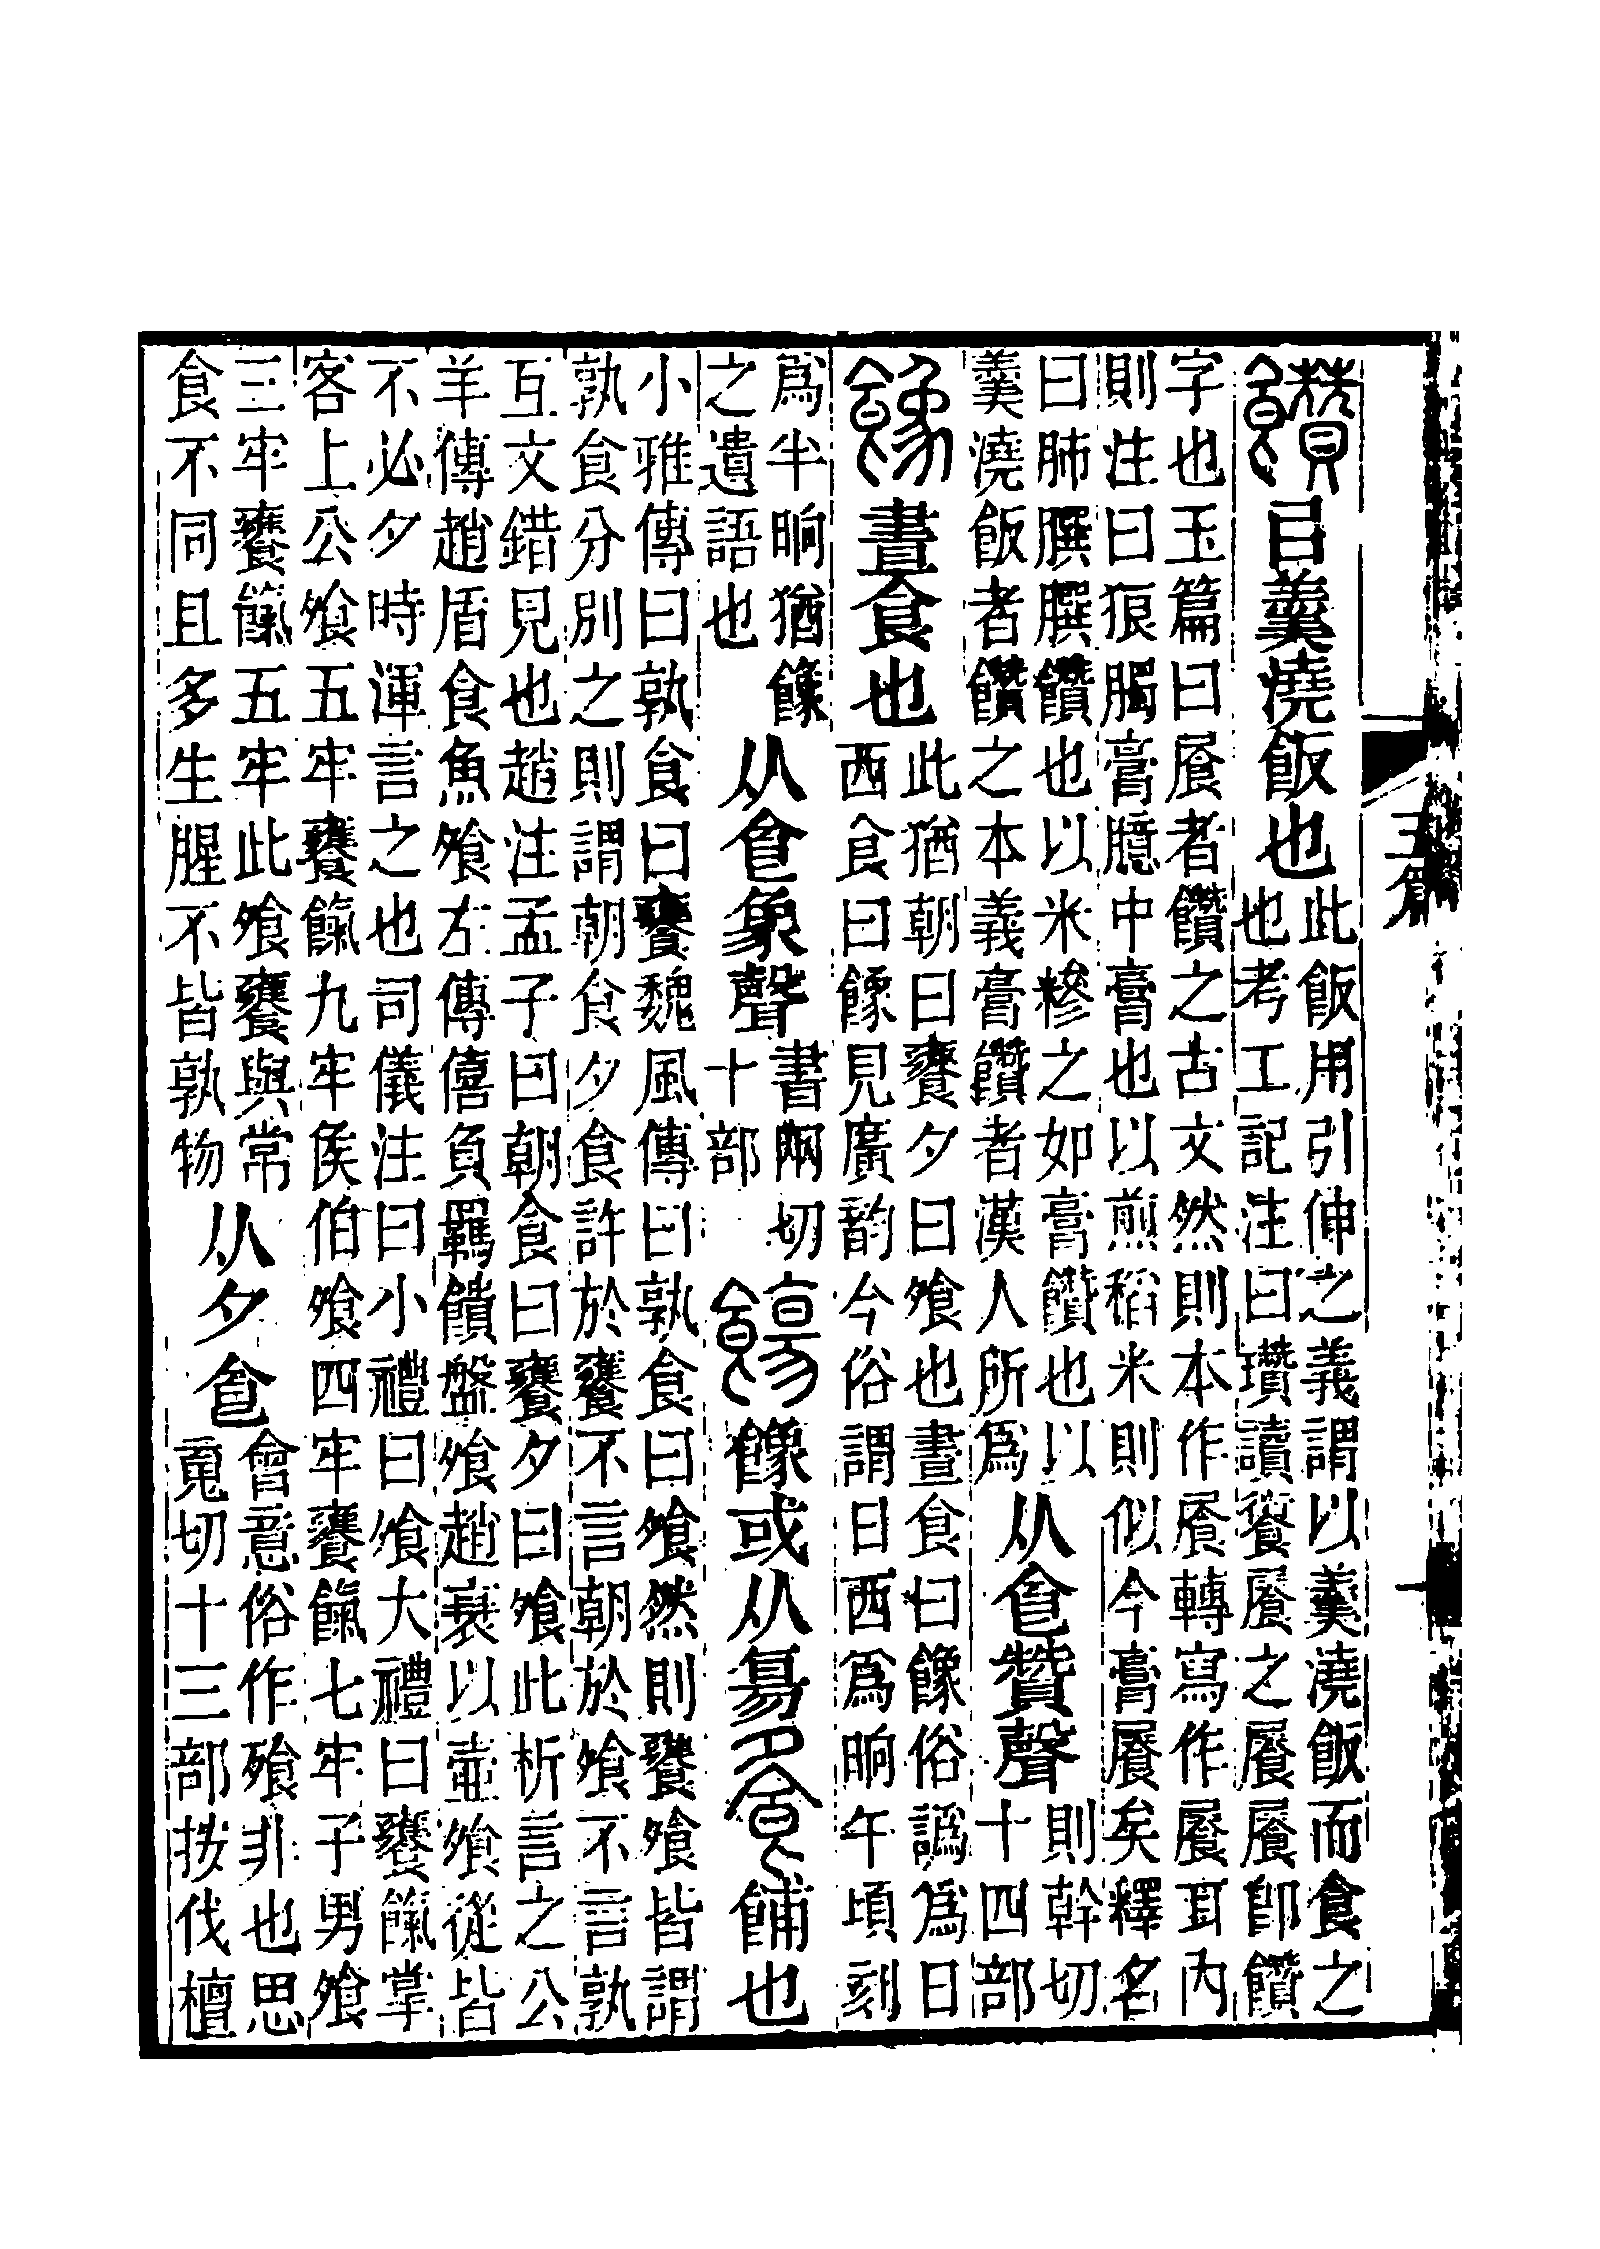 饡㠯羹澆飯也此飯用引伸之義謂以羹澆飯而食之
也考工記注曰瓚讀餐𡳞之𡳞𡳞卽饡
字也玉篇曰𡲬者饡之古文然則本作𡲬轉寫作𡳞耳內
則注曰狼臅膏臆中膏也以煎稻米則似今膏𡳞矣釋名
曰肺䐹䐹饡也以米糝之如膏饡也以
羹澆飯者饡之本義膏饡者漢人所爲
从𠊊贊聲則幹切
十四部
𩜋晝食也此猶朝曰饔夕曰飧也晝食曰𩜋俗譌爲日
西食曰𩜋見廣韵今俗謂日西爲晌午頃刻
爲半晌猶𩜋
之遺語也
从𠊊象聲書兩切
十部
𩜋或从昜
飧餔也
小雅傳曰孰食曰饔魏風傳曰孰食曰飧然則饔飧皆謂
孰食分別之則謂朝食夕食許於饔不言朝於飧不言孰
互文錯見也趙注孟子曰朝食曰饔夕曰飧此析言之公
羊傳趙盾食魚飧左傳僖負羈饋盤飧趙衰以壷飧從皆
不必夕時渾言之也司儀注曰小禮曰飧大禮曰饔餼掌
客上公飧五牢饔餼九牢侯伯飧四牢饔餼七牢子男飧
三牢饔餼五牢此飧饔與常
食不同且多生腥不皆孰物
从夕𠊊會意俗作飱非也思
䰟切十三部按伐檀
五篇